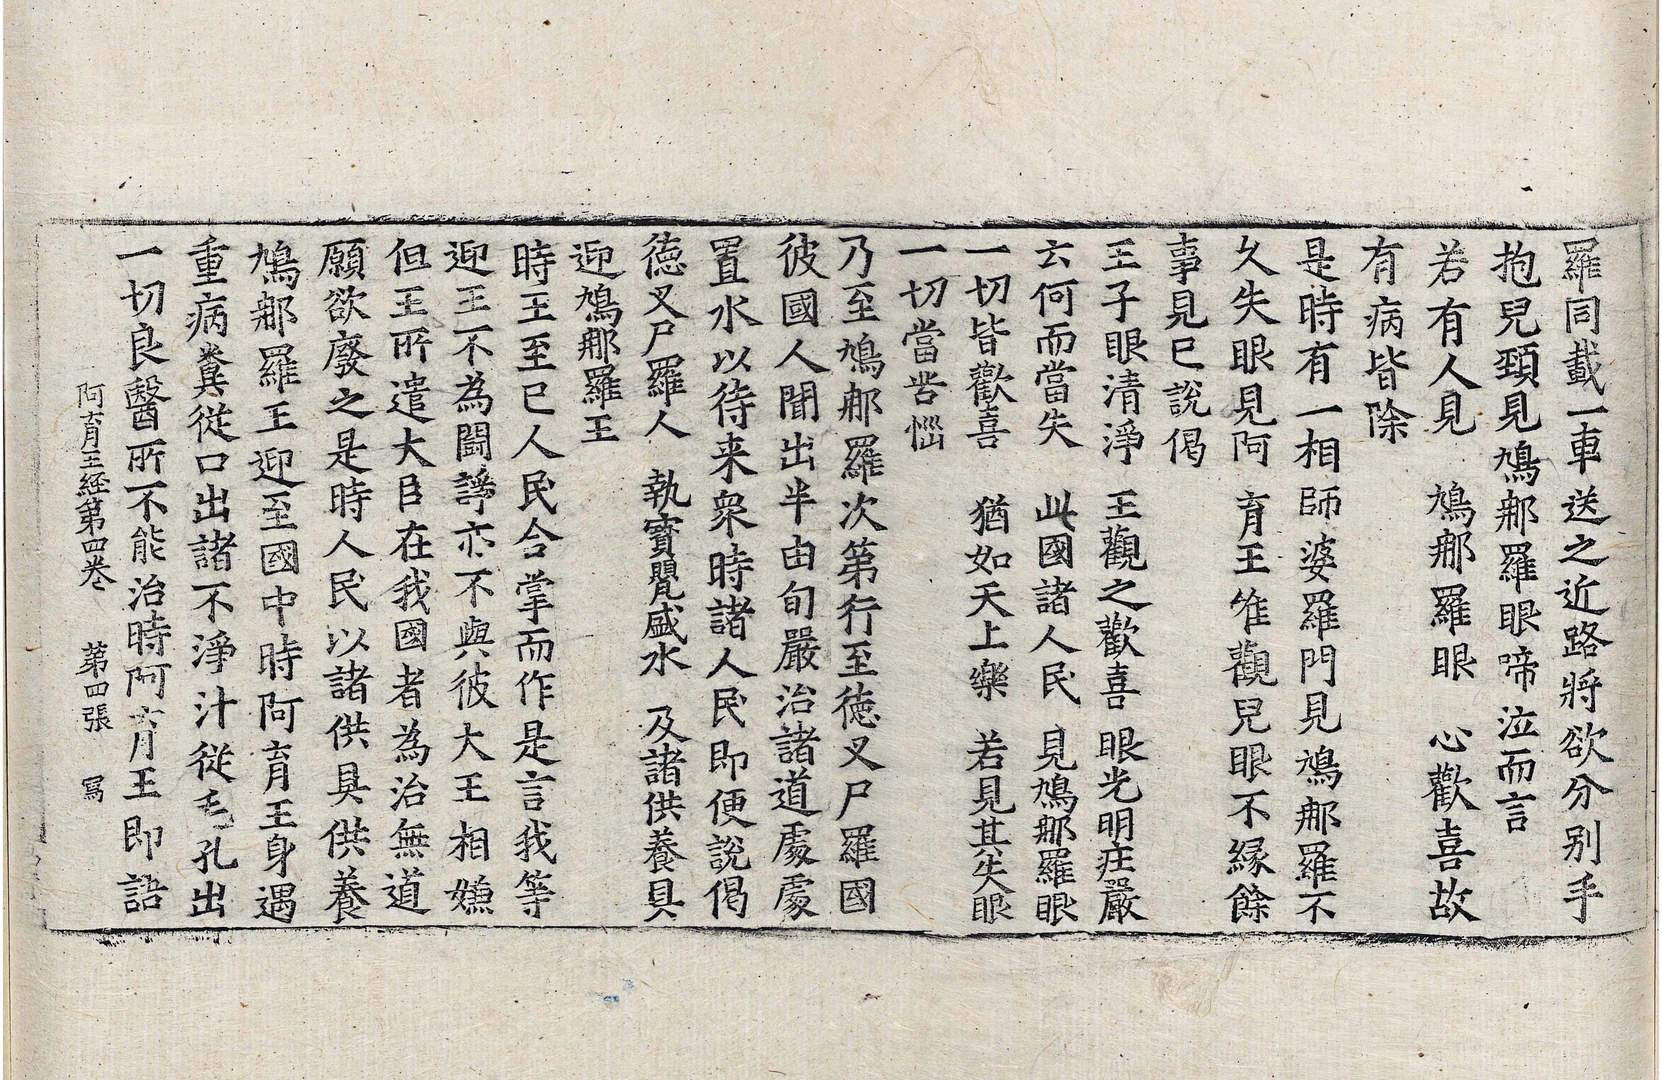 羅同載一車送之近路將欲分别手
抱兒頚見鳩郍羅眼啼泣而言
若有人見　鳩郍羅眼　心歡喜故
有病皆除
是時有一相師婆羅門見鳩郍羅不
乆失眼見阿育王唯觀兒眼不緣餘
事見已說偈
王子眼清淨　王觀之歡喜　眼光明莊嚴
云何而當失　此國諸人民　見鳩郍羅眼
一切皆歡喜　猶如天上樂　若見其失眼
一切當苦惱
乃至鳩郍羅次第行至徳叉尸羅國
彼國人聞出半由旬嚴治諸道處處
置水以待来衆時諸人民即便說偈
徳叉尸羅人　執寳甖盛水　及諸供養具
迎鳩郍羅王
時王至已人民合掌而作是言我等
迎王不為闘諍亦不與彼大王相嫌
但王所遣大臣在我國者為治無道
願欲廢之是時人民以諸供具供養
鳩郍羅王迎至國中時阿育王身遇
重病糞從口出諸不淨汁從毛孔出
一切良醫所不能治時阿育王即語
阿育王経第四巻　第四張　寫